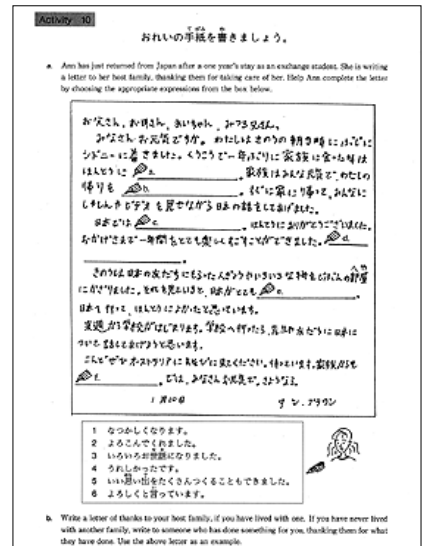 Activity 10
おれいの手紙を書きましょう。
てがみ か
a. Ann has just returned from Japan after a one year's stay as an exchange student. She is writing
a letter to her host family, thanking them for taking care of her. Help Ann complete the letter
by choosing the appropriate expressions from the box below.
お父さん、お母さん、あいちゃん、みつる兄さん。
みなさんお元気ですか。わたしはきのうの朝9時にぶじに
シドニーに着きました。くうこうで一年ぶりに家族に会った時は
ほんとうに a. 。家族はみんな元気で、わたしの
帰りを b. 。すぐに家に帰って、みんなに
しゃしんやビデオを見せながら日本の話をしてあげました。
日本では c. 。ほんとうにありがとうございました。
おかげさまで一年間をとても楽しくすごすことができました。 d.
。
きのうは日本の友だちにもらったにんぎょうやいろいろな物をじぶんの部屋
へや
にかざりました。それを見ていると、日本がとても e. 。
日本へ行って、ほんとうによかったと思っています。
来週から学校がはじまります。学校へ行ったら、先生や友だちに日本に
ついて話してあげようと思います。
こんどぜひオーストラリアにあそびに来てください。待っています。家族からも
f. 。では、みなさんお元気で。さようなら。
1月10日
アン・ブラウン
1 なつかしくなります。
2 よろこんでくれました。
3 いろいろお世話になりました。
4 うれしかったです。
5 いい思い出をたくさんつくることもできました。
6 よろしくと言っています。
b. Write a letter of thanks to your host family, if you have lived with one. If you have never lived
with another family, write to someone who has done something for you, thanking them for what
they have done. Use the above letter as an example.